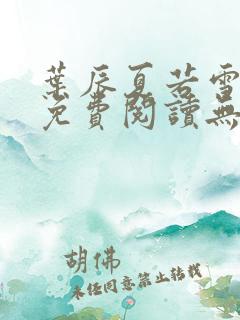 葉辰夏若雪
免費閱讀無
胡佛
未經同意禁止轉載